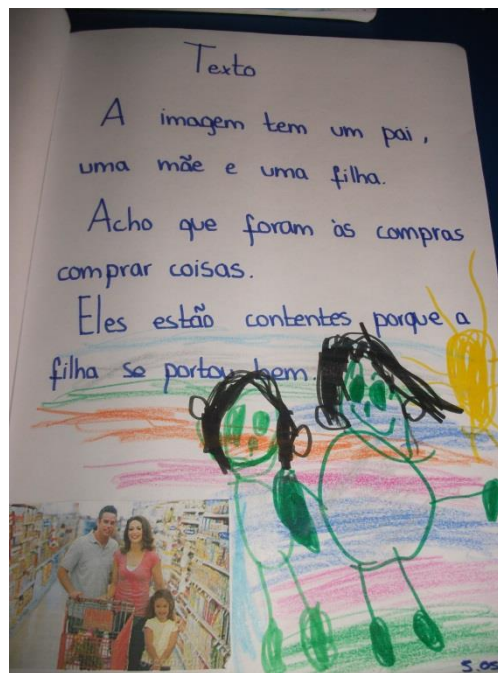 Texto
A imagem tem um pai,
uma mãe e uma filha.
Acho que foram às compras
comprar coisas.
Eles estão contentes porque a
filha se portou bem.